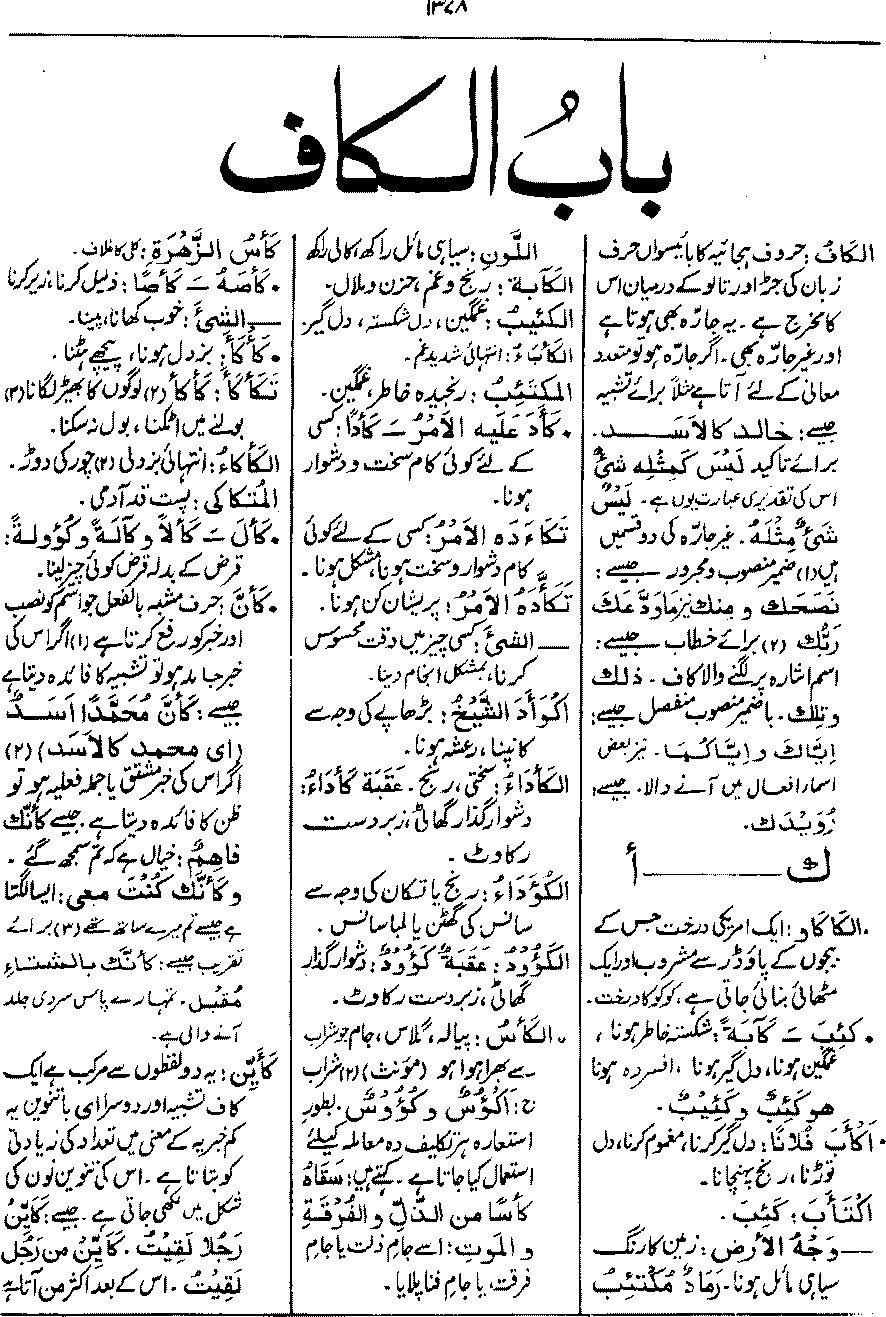 ١٣٤٨
بابُ الكاف
الكافُ: حروف ہجائیہ کا بائیسواں حرف
زبان کی جڑ اور تالو کے درمیان اس
کا مخرج ہے۔ یہ جارّہ بھی ہوتا ہے
اور غیر جارّہ بھی۔ اگر جارّہ ہو تو متعدد
معانی کے لئے آتا ہے مثلاً برائے تشبیہ
جیسے: خالد كالأسَد۔
برائے تاکید لَيْسَ كَمِثْلِهِ شيءٌ
اس کی تقدیری عبارت یوں ہے۔ لَيْسَ
شيءٌ مِثْلَهُ۔ غیر جارّہ کی دو قسمیں
ہیں (۱) ضمیر منصوب و مجرور جیسے:
نَصَحَكَ و مِنكَ نیز ماوَدَّعَكَ
رَبُّكَ (۲) برائے خطاب جیسے:
اسم اشارہ پر لگنے والا کاف۔ ذلك
وتِلك۔ یا ضمیر منصوب منفصل جیسے:
إيّاك وإيّاكُما۔ نیز بعض
اسماء افعال میں آنے والا۔ جیسے:
رُوَيْدَك۔
ك ــــــ أ
•الكاكاو: ایک امریکی درخت جس کے
بیجوں کے پاؤڈر سے مشروب اور ایک
مٹھائی بنائی جاتی ہے، کوکو کا درخت۔
•كَئِبَ ــَ كَآبَةً: شکستہ خاطر ہونا،
غمگین ہونا، دل گیر ہونا، افسردہ ہونا
هو كَئِبٌ وكَئِيبٌ۔
•أَكْأَبَ فُلانًا: دل گیر کرنا، مغموم کرنا، دل
توڑنا، رنج پہنچانا۔
اكْتَأَبَ: كَئِبَ۔
ــــ وَجْهُ الأرضِ: زمین کا رنگ
سیاہی مائل ہونا۔ رَمادٌ مُكْتَئِبُ
اللَّونِ: سیاہی مائل راکھ، کالی راکھ
الكَآبة: رنج و غم، حزن و ملال۔
الكَئِيبُ: غمگین، دل شکستہ، دل گیر۔
الكَأْبَاءُ: انتہائی شدید غم۔
المُكتَئِبُ: رنجیدہ خاطر، غمگین۔
•كَأَدَ عَلَيه الأمرُ ــَ كَأْدًا: کسی
کے لئے کوئی کام سخت و دشوار
ہونا۔
تَكاءَدَه الأمرُ: کسی کے لئے کوئی
کام دشوار و سخت ہونا، مشکل ہونا۔
تَكَأَّدَهُ الأمرُ: پریشان کن ہونا۔
ــــ الشيءَ: کسی چیز میں دقت محسوس
کرنا، بمشکل انجام دینا۔
اكْوَأَدَّ الشَّيْخُ: بڑھاپے کی وجہ سے
کانپنا، رعشہ ہونا۔
الكَأْدَاءُ: سختی، رنج۔ عَقَبَة كَأْدَاءُ:
دشوار گذار گھاٹی، زبردست
رکاوٹ۔
الكُؤَدَاءُ: رنج یا تکان کی وجہ سے
سانس کی گھٹن یا لمبا سانس۔
الكَؤُودُ: عَقَبَةٌ كَؤُودٌ: دشوار گذار
گھاٹی، زبردست رکاوٹ۔
•الكَأْسُ: پیالہ، گلاس، جام جو شراب
سے بھرا ہوا ہو (مؤنث) (۲) شراب
ج: أَكْؤُسٌ وكُؤُوسٌ۔ بطورِ
استعارہ ہر تکلیف دہ معاملہ کیلئے
استعمال کیا جاتا ہے۔ کہتے ہیں: سَقَاهُ
كأسًا من الذُّلِّ والفُرْقَةِ
والموتِ: اسے جامِ ذلت یا جامِ
فرقت، یا جامِ فنا پلایا۔
كَأسُ الزَّهْرَةِ: کلی کا غلاف۔
•كَأَصَهُ ــَ كَأْصًا: ذلیل کرنا، زیر کرنا
ــــ الشيءَ: خوب کھانا، پینا۔
•كَأْكَأَ: بزدل ہونا، پیچھے ہٹنا۔
تَكَأْكَأَ: كَأْكَأ (۲) لوگوں کا بھیڑ لگانا (۳)
بولنے میں اٹکنا، بول نہ سکنا۔
الكَأْكَاءُ: انتہائی بزدلی (۲) چور کی دوڑ۔
المُتَكَأْكِئُ: پست قد آدمی۔
•كَأَلَ ــَ كَأْلًا وكَآلَةً وكُؤُولةً:
قرض کے بدلہ قرض کوئی چیز لینا۔
•كَأَنَّ: حرف مشبہ بالفعل جو اسم کو نصب
اور خبر کو رفع کرتا ہے (۱) اگر اس کی
خبر جامد ہو تو تشبیہ کا فائدہ دیتا ہے
جیسے: كَأَنَّ مُحَمَّدًا أَسَدٌ
(أي محمد كالأسَد) (۲)
اگر اس کی خبر مشتق یا جملہ فعلیہ ہو تو
ظن کا فائدہ دیتا ہے۔ جیسے كأنَّك
فاهِمٌ: خیال ہے کہ تم سمجھ گئے۔
وكأنَّك كُنْتَ معي: ایسا لگتا
ہے جیسے تم میرے ساتھ تھے (۳) برائے
تقریب جیسے: كأنَّك بالشتاءِ
مُقْبِل۔ تمہارے پاس سردی جلد
آنے والی ہے۔
كَأَيِّن: یہ دو لفظوں سے مرکب ہے ایک
کاف تشبیہ اور دوسرا ای با تنوین یہ
کم خبریہ کے معنی میں تعداد کی زیادتی
کو بتاتا ہے۔ اس کی تنوین نون کی
شکل میں لکھی جاتی ہے۔ جیسے: كَأَيِّنْ
رَجُلًا لَقِيتُ۔ كَأَيِّنْ من رَجُلٍ
لَقِيتُ۔ اس کے بعد اکثر من آتا ہے